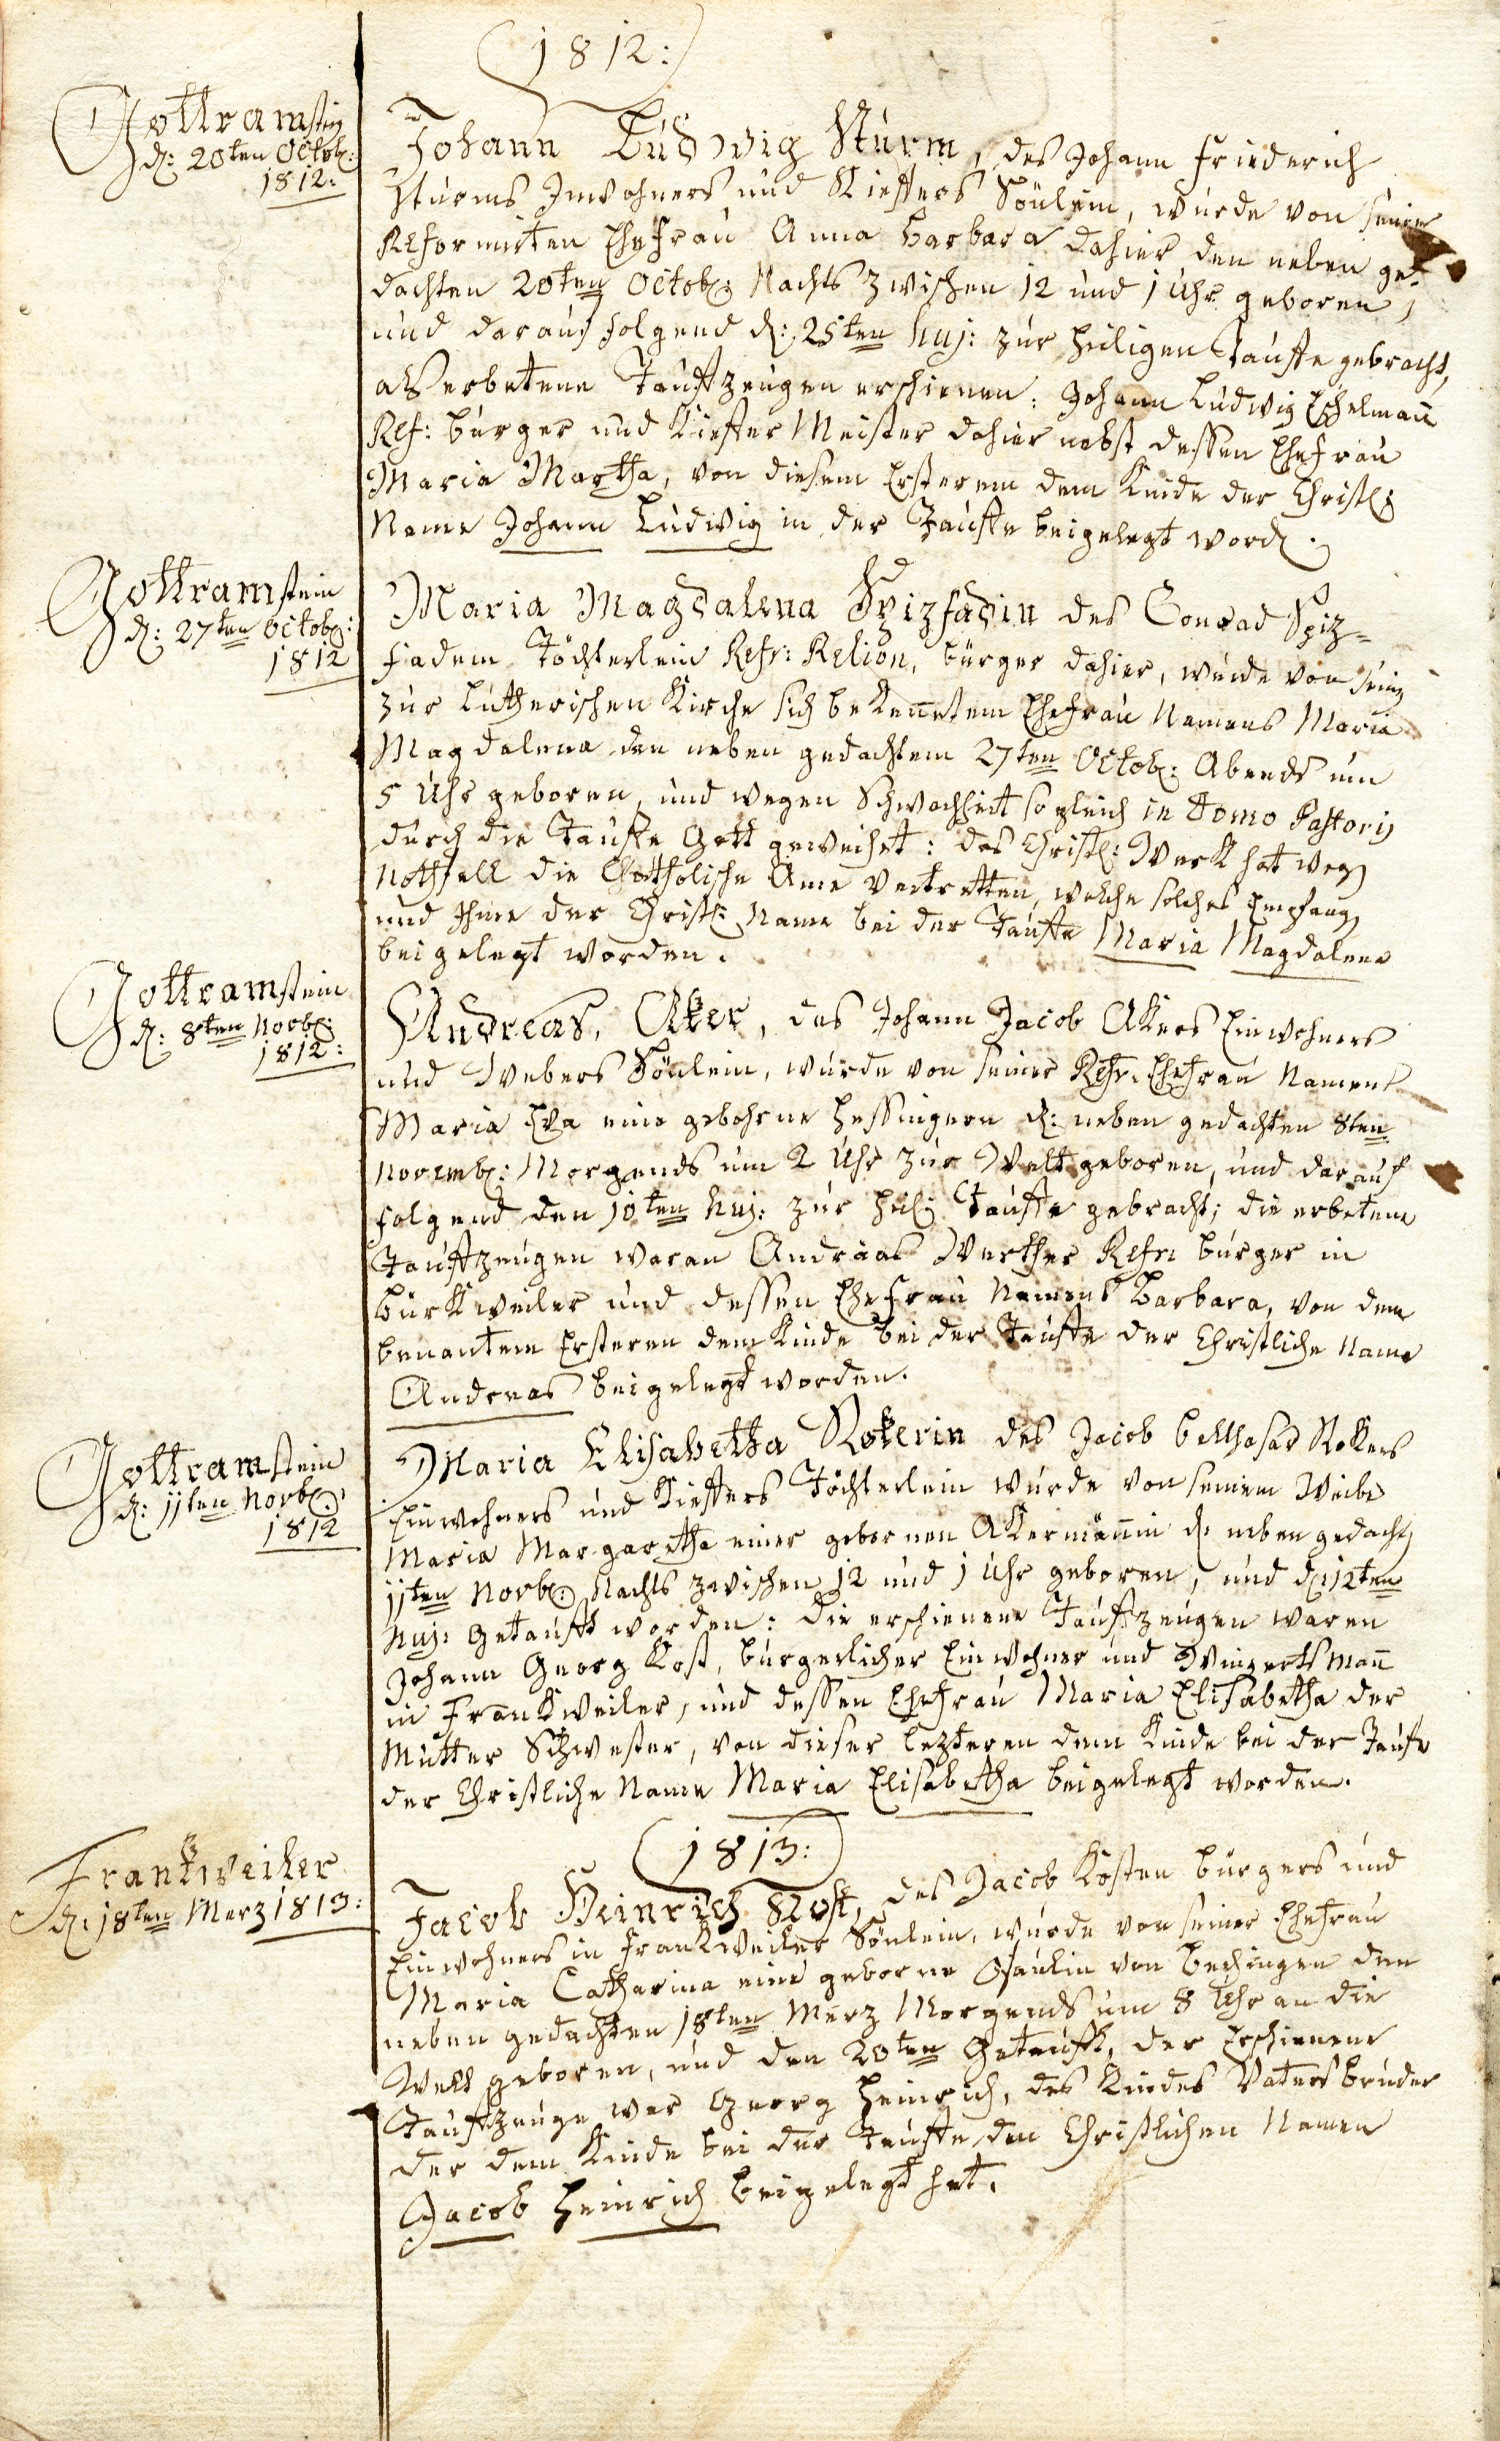 1812:
Gottramstein
d: 20ten Octob:
1812:
Johann Ludwig Sturm, des Johann Friederich
Sturms Inwohners und Kieffers Sönlein, wurde von seiner
Reformirten Ehefrau Anna Barbara dahier den neben ge-
dachten 20ten Octob: Nachts zwischen 12 und 1 Uhr geboren,
und darauf folgend d: 25ten huj: zur heiligen Tauffe gebracht,
als erbetene Tauffzeugen erschienen: Johann Ludwig Eschelman̄
Ref: bürger und Kieffer Meister dahier nebst dessen Ehefrau
Maria Martha, von diesem Ersterem dem Kinde der Christl:
Name Johann Ludwig in der Tauffe beigelegt word.
Gottramstein
d: 27ten Octob:
1812
Maria Magdalena Spizfadin des Conrad Spiz=
fadem Töchterlein Refr: Relion, bürger dahier, wurde von seiner
zur Lutherischen Kirche sich bekennetem Ehefrau Namens Maria
Magdalena den neben gedachtem 27ten Octob: Abends um
5 Uhr geboren, und wegen Schwachheit so gleich in Domo Pastoris
durch die Tauffe Gott geweihet: das Christl: Werk hat wegen
Nothfall die Chatholische Ame vertretten, welche solches Empfangen
und Ihme der Christl: Name bei der Tauffe Maria Magdalena
beigelegt worden.
Gottramstein
d: 8ten Novb:
1812:
Andreas, Aker, des Johann Jacob Akers Einwohners
und Webers Sönlein, wurde von seiner Refr. Ehefrau Namens
Maria Eva eine gebohrne Hessingern d: neben gedachten 8ten
Novemb: Morgends um 2 Uhr zur Welt geboren, und darauf
folgend den 10ten huj: zur heil: Tauffe gebracht; die erbetene
Tauffzeugen waren Andreas Werther Refr: bürger in
Bürkweiler und dessen Ehefrau Namens Barbara, von dem
benantem Ersteren dem Kinde bei der Tauffe der Christliche Name
Andreas beigelegt worden.
Gottramstein
d: 11ten Novb:
1812
Maria Elisabetha Rokerin des Jacob Balthasar Rokers
Einwohners und Kieffers Töchterlein wurde von seinem Weibe
Maria Margaretha einer gebornen Akermännin d: neben gedachten
11ten Novb: Nachts zwischen 12 und 1 Uhr geboren, und d: 12ten
huj: Getaufft worden: die erschienene Tauffzeugen waren
Johann Georg Kost, bürgerlicher Einwohner und Wingertsman̄
in Frankweiler, und dessen Ehefrau Maria Elisabetha der
Mutter Schwester, von dieser lezteren dem Kinde bei der Taufe
der Christliche Name Maria Elisabetha beigelegt worden.
1813:
Frankweiler
d: 18ten Merz 1813:
Jacob Heinrich Kost, des Jacob Kosten bürgers und
Einwohners in Frankweiler Sönlein, wurde von seiner Ehefrau
Maria Catharina eine geborne von Bechingen den
neben gedachten 18ten Merz Morgends um 8 Uhr an die
Welt geboren, und den 20ten Getaufft, der Erschienene
Tauffzeuge war Georg Heinrich, des Kindes Vatersbruder
der dem Kinde bei der Tauffe den Christlichen Namen
Jacob Heinrich beigelegt hat.